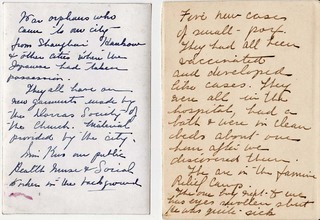 War orphans who
came to our city
from Shanghai Hankow
& other cities when the
Japanese had taken
possession.
They all have on
new garments made by
the Dorcas Society of
the Church. Material
provided by the city.
Miss Kiu our public
Health Nurse & Social
Worker in the background
Five new cases
of small-pox.
They had all been
vaccinated
and developed
like cases. They
were all in the
hospital, had a
bath & were in clean
beds about one
hour after we
discovered them.
are in the Famine
Relief Camp.
The one boy right & we
has eyes swollen about
is who quite sick